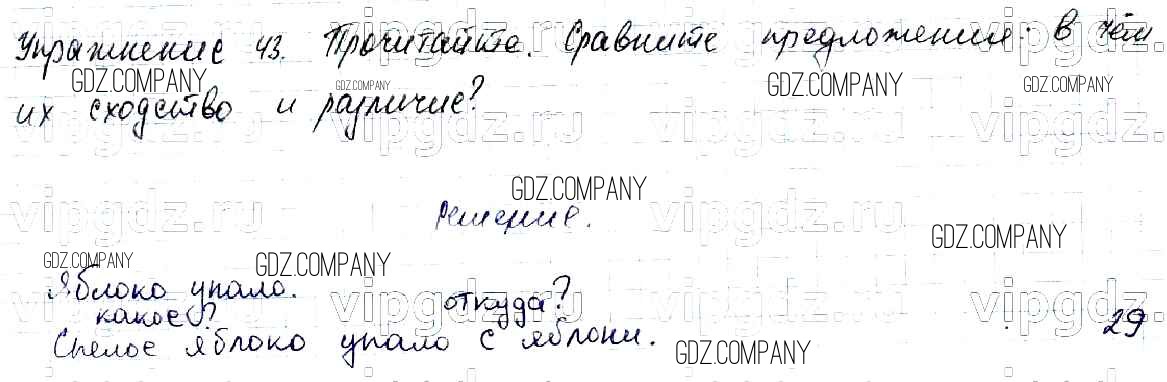 Упражнение 43. Прочитайте. Сравните предложения: в чём
GDZ.COMPANY GDZ.COMPANY GDZ.COMPANY
их сходство и различие?
vipgdz.ru vipgdz.ru vipgdz.ru vipgdz
GDZ.COMPANY
vipgdz.ru vipgdz.ru vipgdz.ru
Решение.
GDZ.COMPANY
GDZ.COMPANY GDZ.COMPANY
Яблоко упало.
vipgdz.ru vipgdz.ru vipgdz.ru vipgdz
какое? откуда?
29
Спелое яблоко упало с яблони.
GDZ.COMPANY